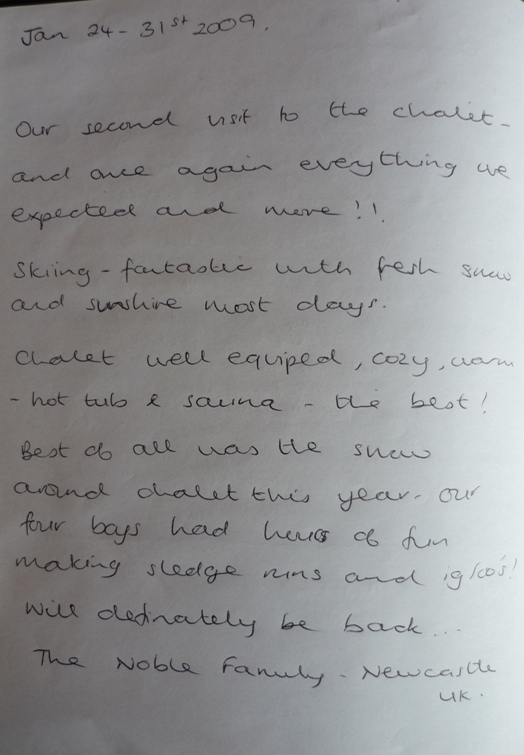 Jan 24 - 31st 2009.
Our second visit to the chalet -
and once again everything we
expected and more!!.
Skiing - fantastic with fresh snow
and sunshine most days.
Chalet well equiped, cozy, warm
- hot tub & sauna - the best!
Best of all was the snow
around chalet this year. Our
four boys had hours of fun
making sledge runs and igloo's!
Will definately be back...
The Noble Family - Newcastle
UK.